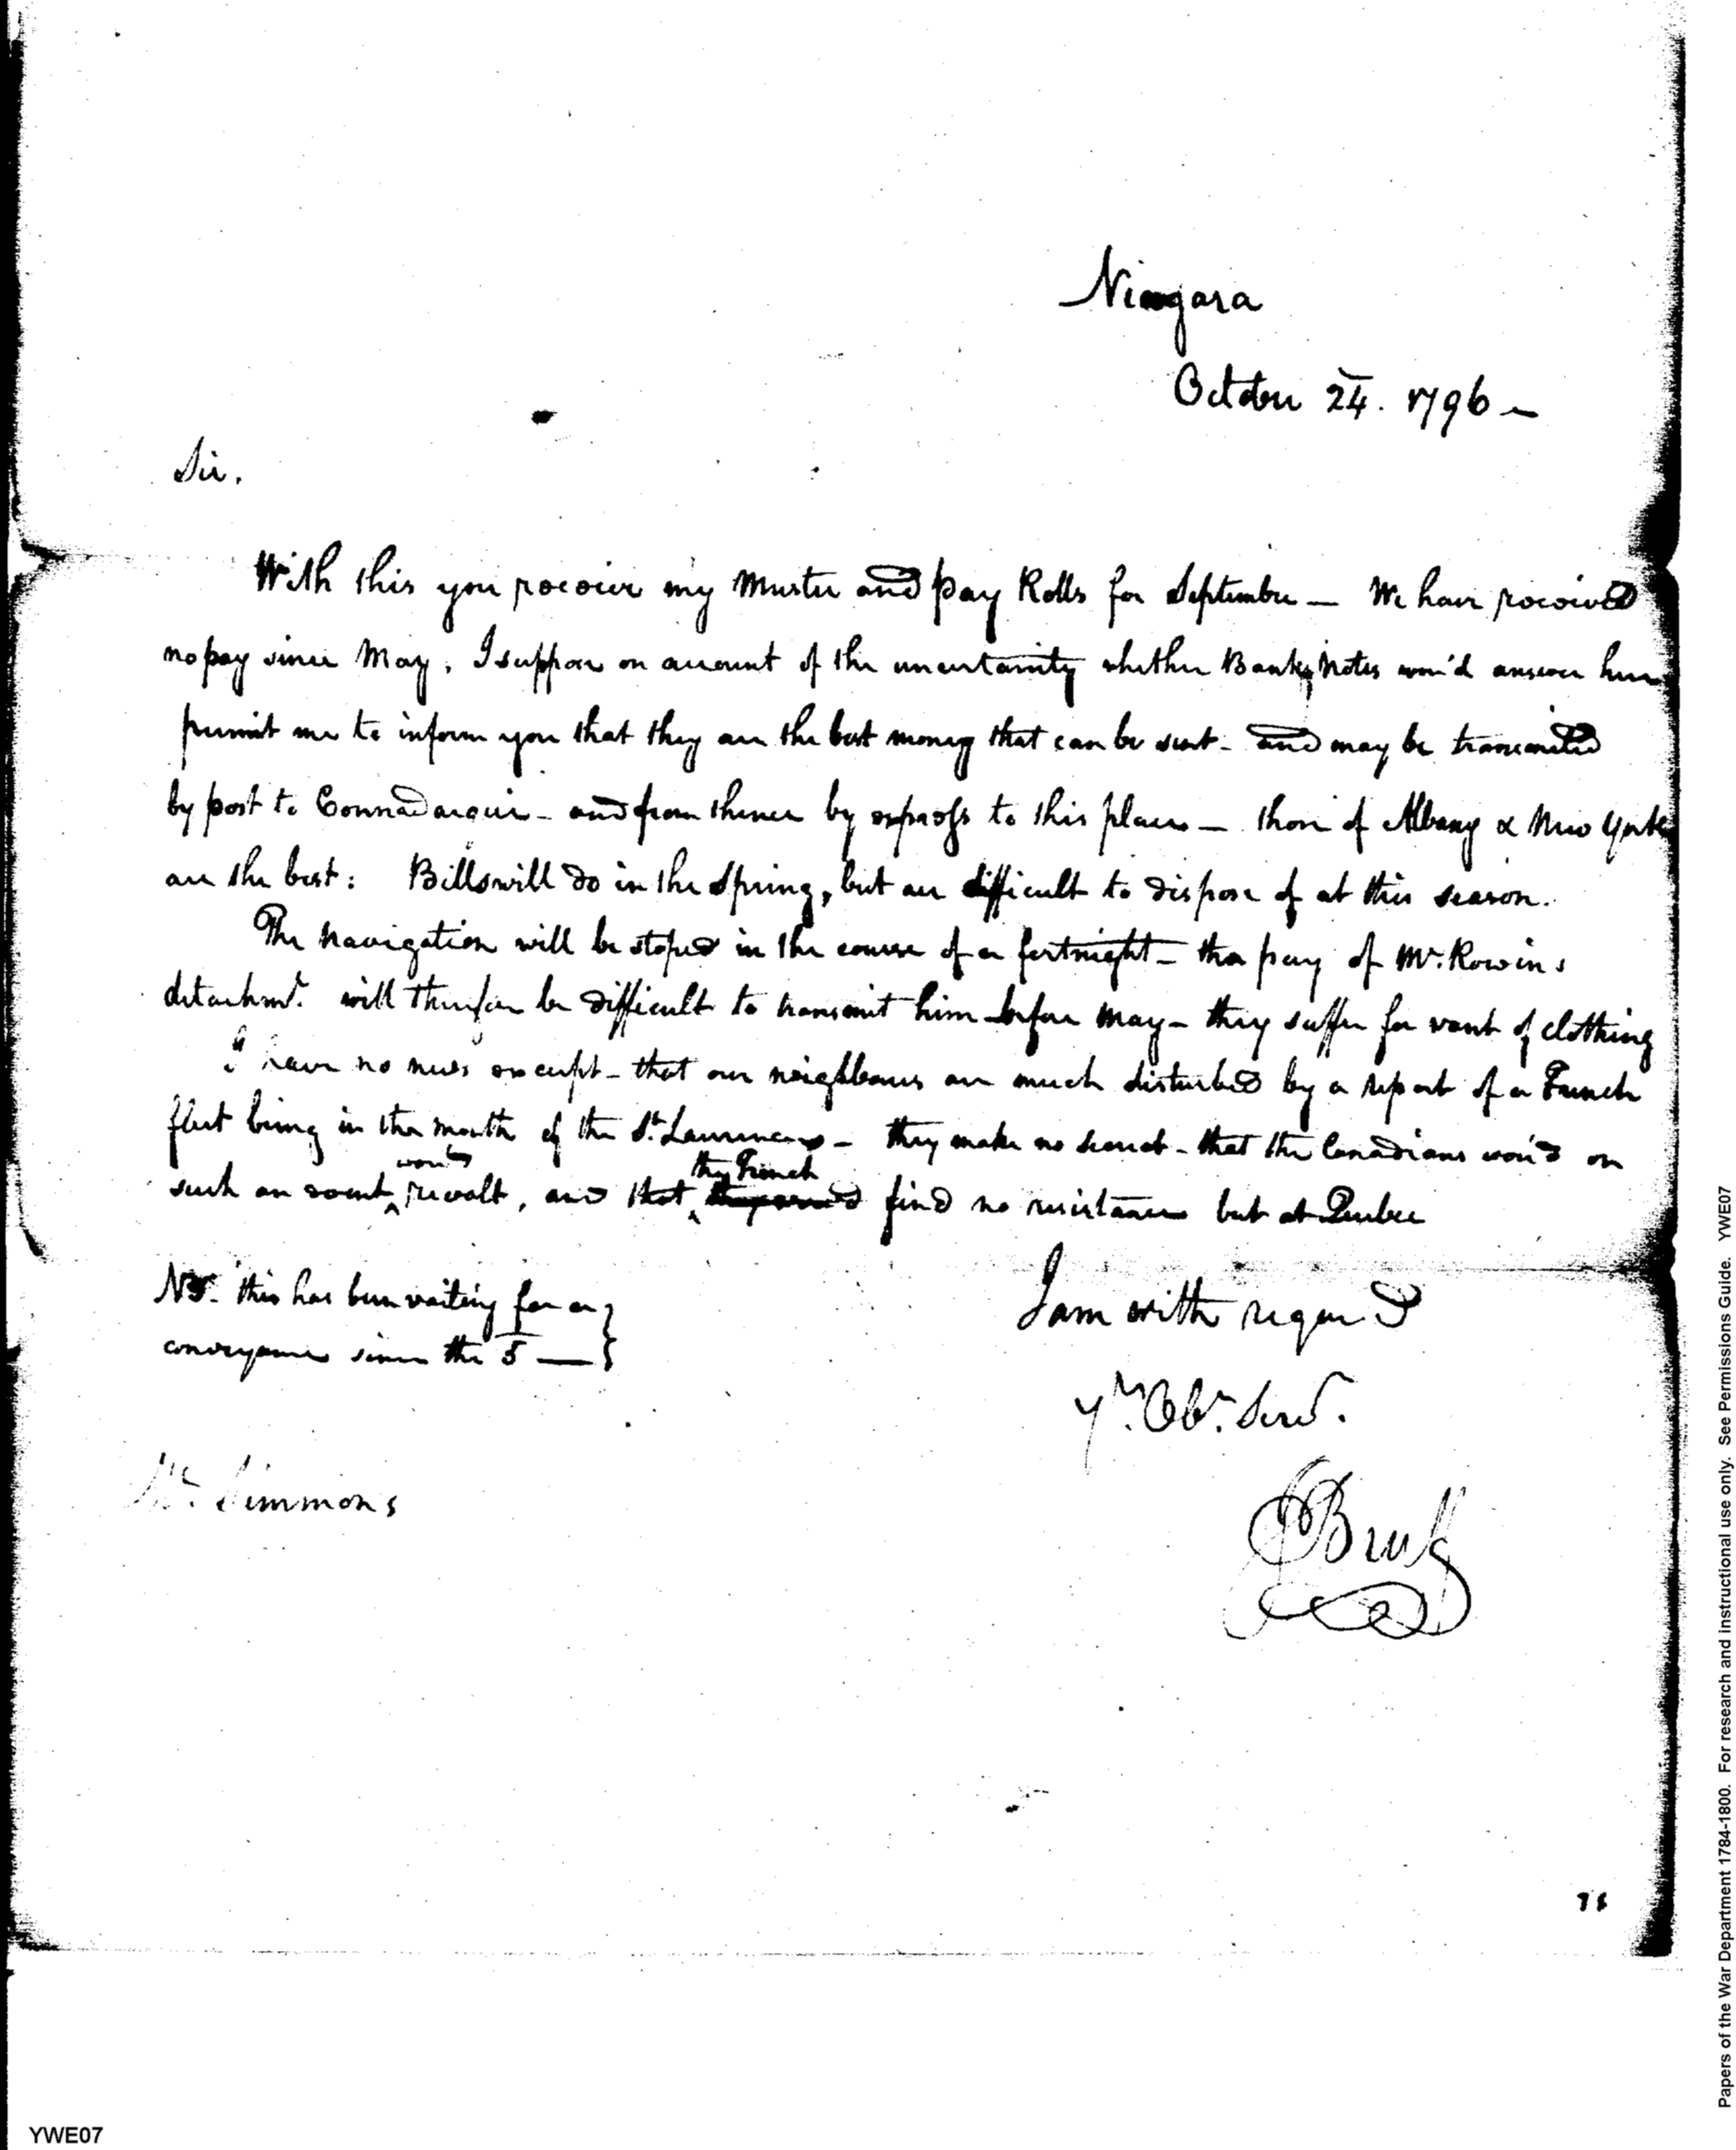 Niagara
October 24. 1796 -
Sir.
With this you receive my Muster and Pay Rolls for September — We have received
no pay since May, I suppose on account of the uncertainty whether Bank Notes wou'd answer here
permit me to inform you that they are the best money that can be sent - and may be transmitted
by post to Connadarguie - and from thence by express to this place — those of Albany & New York
are the best: Bills will do in the Spring, but are difficult to dispose of at this season.
The Navigation will be stoped in the course of a fortnight - the pay of Mr. Rowins
detachmt. will therefore be difficult to transmit him before May - they suffer for want of clothing
I have no news except - that our neighbours are much disturbed by a report of a French
fleet being in the mouth of the St. Laurence - they make no secret - that the Canadians wou'd on
such an event would revolt, and that the French find no resistance but at Quebec
NB. this has been waiting for a
conveyance since the 5 —
I am with regard
Yr. Obt. Servt.
Bruff
Mr. Simmons
YWE07
Papers of the War Department 1784-1800. For research and instructional use only. See Permissions Guide. YWE07